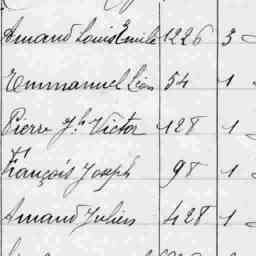 Amand Louis Emile 1226 3
Emmanuel Léon 54 1
Pierre Jh Victor 128 1
François Joseph 98 1
Amand Julien 428 1